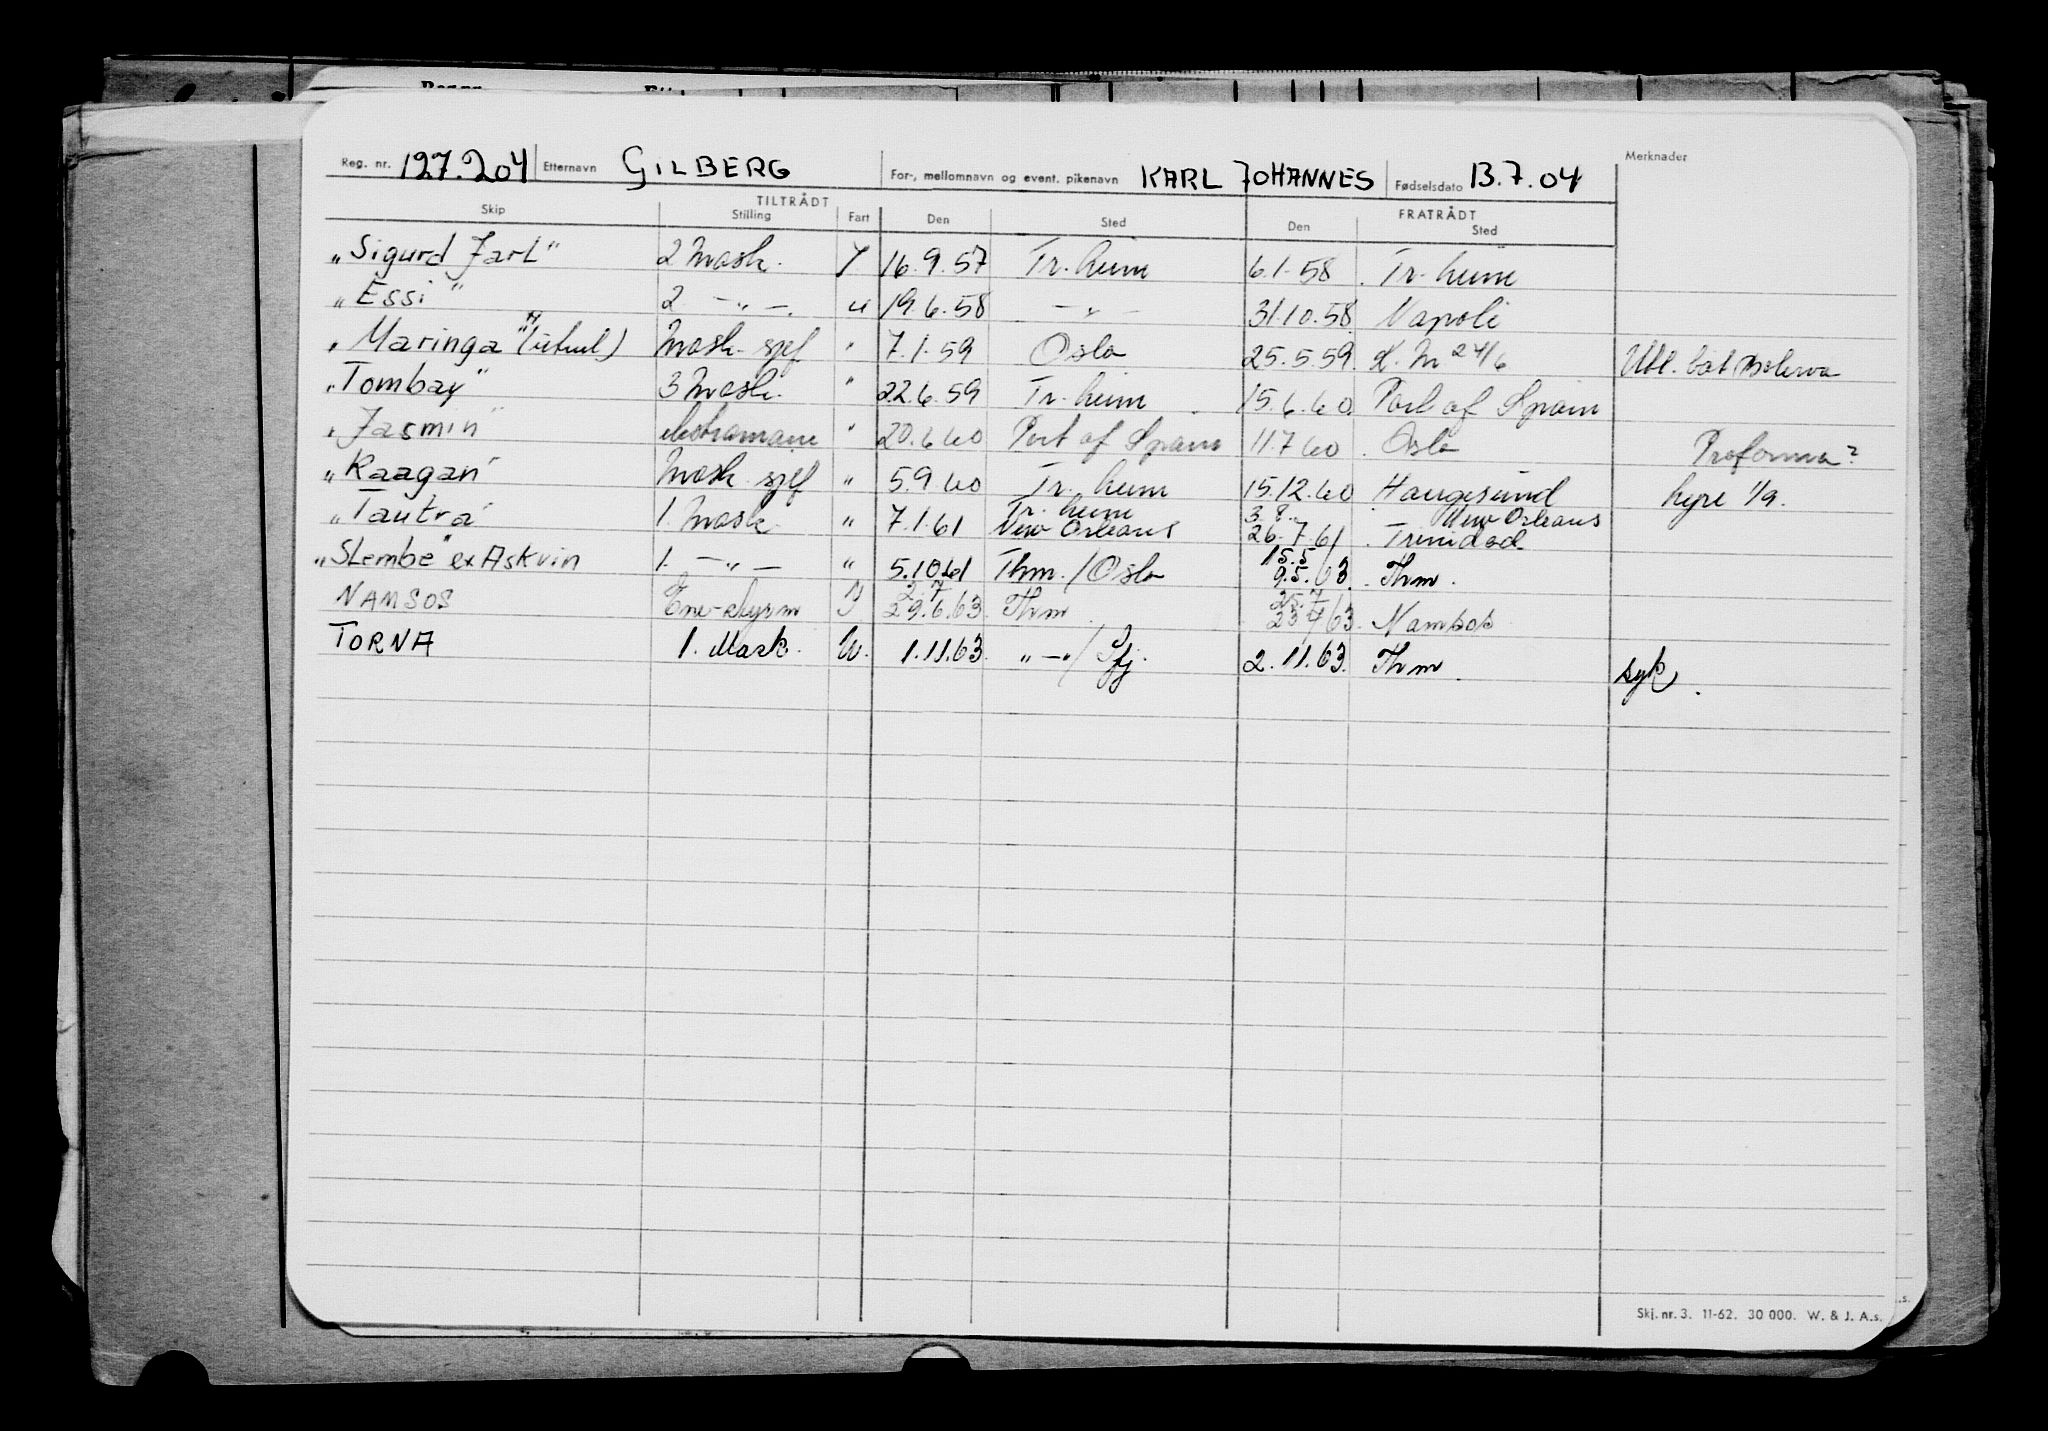 Reg. nr. 127.204 Etternavn GILBERG For-, mellomnavn og event. pikenavn KARL JOHANNES Fødselsdato 13.7.04 Merknader
TILTRÅDT FRATRÅDT
Skip Stilling Fart Den Sted Den Sted
"Sigurd Jarl" 2 Mask. 16.9.57 Tr.heim 6.1.58 Tr.heim
"Essi" 2 -"- u 19.6.58 -"- 31.10.58 Napoli
"Maringa" Mask. sjef " 7.1.59 Oslo 25.5.59 24/6 Utl. båt
"Tombay" 3 Mask. " 22.6.59 Tr.heim 15.6.60 Port of Spain
"Jasmin" " 20.6.60 Port of Spain 11.7.60 Oslo Proforma?
"Raagan" Mask. sjef " 5.9.60 Tr.heim 15.12.60 Haugesund hyre 1/9.
Tr.heim 3.8. New Orleans
"Tautra" 1. Mask. " 7.1.61 New Orleans 26.7.61 Trinidad
15.5
"Slembe" ex Askvin 1. -"- " 5.10.61 Thm./Oslo 9.5.63 Thm.
2.7 25.7
NAMSOS Ene-styrm 29.6.63 Thm 23/7 63 Namsos
TORNA 1. Mask. U. 1.11.63 "-"/ 2.11.63 Thm. syk.
Skj. nr. 3. 11-62. 30 000. W. & J. A.s.